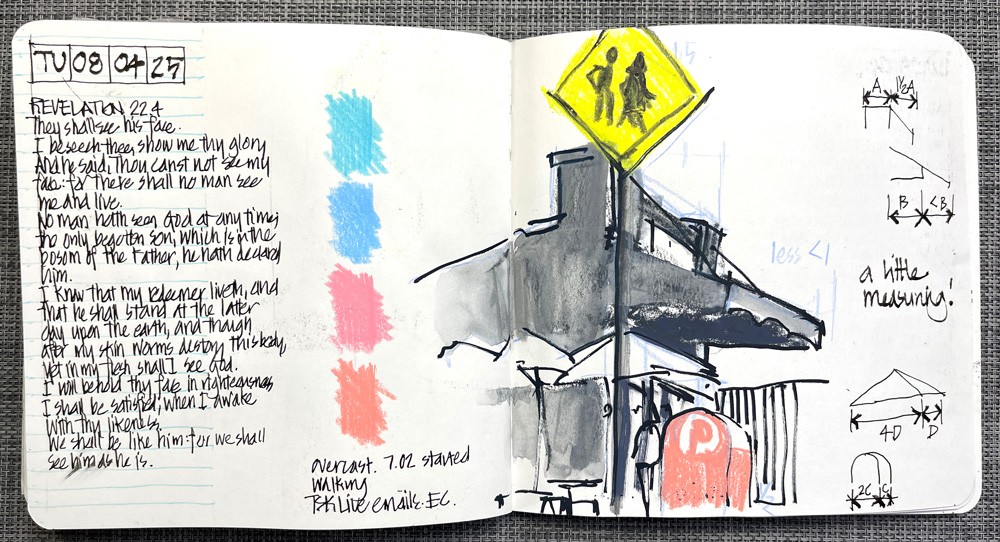 TU 08 04 25
REVELATION 22.4
They shall see his face.
I beseech thee, show me thy glory
And he said, Thou canst not see my
face: for there shall no man see
me and live.
No man hath seen God at any time;
the only begotten son, which is in the
bosom of the Father, he hath declared
him.
I know that my redeemer liveth, and
that he shall stand at the latter
day upon the earth, and though
after my skin worms destroy this body,
yet in my flesh shall I see God.
I will behold thy face in righteousness
I shall be satisfied, when I awake
with thy likeness.
We shall be like him: for we shall
see him as he is.
overcast. 7.02 started
walking
emails. EC.
1.5
less <1
P
A 1½A
B <B
a little
measuring!
4D D
2C C